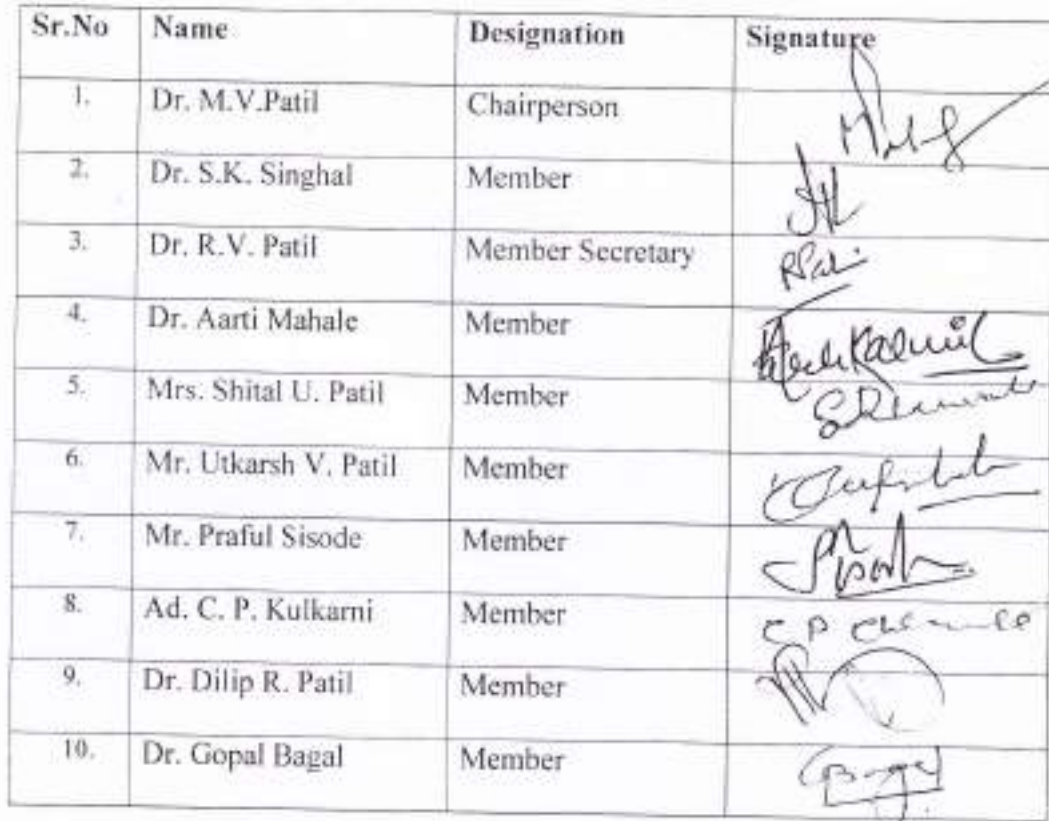 Sr.No Name Designation Signature
1. Dr. M.V.Patil Chairperson
2. Dr. S.K. Singhal Member
3. Dr. R.V. Patil Member Secretary
4. Dr. Aarti Mahale Member
5. Mrs. Shital U. Patil Member
6. Mr. Utkarsh V. Patil Member
7. Mr. Praful Sisode Member
8. Ad. C. P. Kulkarni Member
9. Dr. Dilip R. Patil Member
10. Dr. Gopal Bagal Member